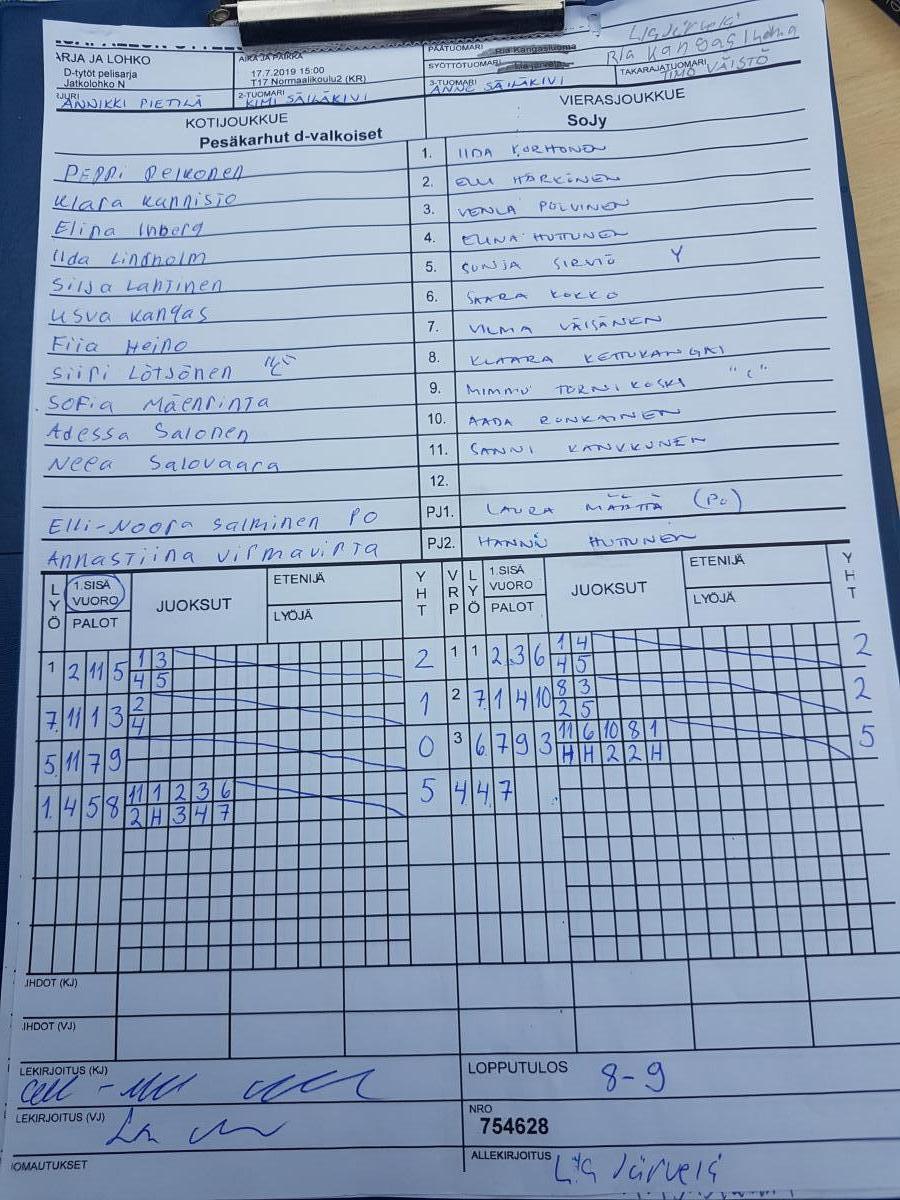 ARJA JA LOHKO
D-tytöt pelisarja
Jatkolohko N
AIKA JA PAIKKA
17.7.2019 15:00
T17 Normaalikoulu2 (KR)
PÄÄTUOMARI Ria Kangasluoma Lia Järvelä
SYÖTTÖTUOMARI Ria Kangasluoma
JURI ANNIKKI PIETILÄ
2-TUOMARI KIMI SÄILÄKIVI
3-TUOMARI ANNE SÄILÄKIVI
TAKARAJATUOMARI TIMO VÄISTÖ
KOTIJOUKKUE VIERASJOUKKUE
Pesäkarhut d-valkoiset SoJy
Peppi Pelkonen 1. IIDA KORHONEN
Klara Kannisto 2. ELLI HÄRKINEN
Elina Inberg 3. VENLA POLVINEN
Iida Lindholm 4. ELINA HUTTUNEN
Silja Lahtinen 5. SONJA SIRVIÖ Y
Usva Kangas 6. SAARA KOKKO
Fiia Heino 7. VILMA VÄISÄNEN
Siiri Lötjönen "C" 8. KLAARA KETTUKANGAS
Sofia Mäenrinta 9. MIMMU TORNIKOSKI "C"
Adessa Salonen 10. AADA RONKAINEN
Neea Salovaara 11. SANNI KANKKUNEN
12.
Elli-Noora Salminen PO PJ1. LAURA MÄÄTTÄ (PO)
Annastiina Virmavirta PJ2. HANNU HUTTUNEN
LYÖ 1.SISÄ VUORO PALOT JUOKSUT ETENIJÄ LYÖJÄ YHT VRP LYÖ 1.SISÄ VUORO PALOT JUOKSUT ETENIJÄ LYÖJÄ YHT
1 2 11 5 1 3 2 1 1 2 3 6 1 4 2
4 5 4 5
7. 11 1 3 2 1 2 7. 1 4 10 8 3 2
4 2 5
5. 11 7 9 0 3 6. 7 9 3 11 6 10 8 1 5
H H 2 2 H
1. 4 5 8 11 1 2 3 6 5 4 4 7
2 H 3 4 7
IHDOT (KJ)
IHDOT (VJ)
LEKIRJOITUS (KJ)
LOPPUTULOS 8-9
LEKIRJOITUS (VJ)
NRO
754628
IOMAUTUKSET
ALLEKIRJOITUS Lia Järvelä